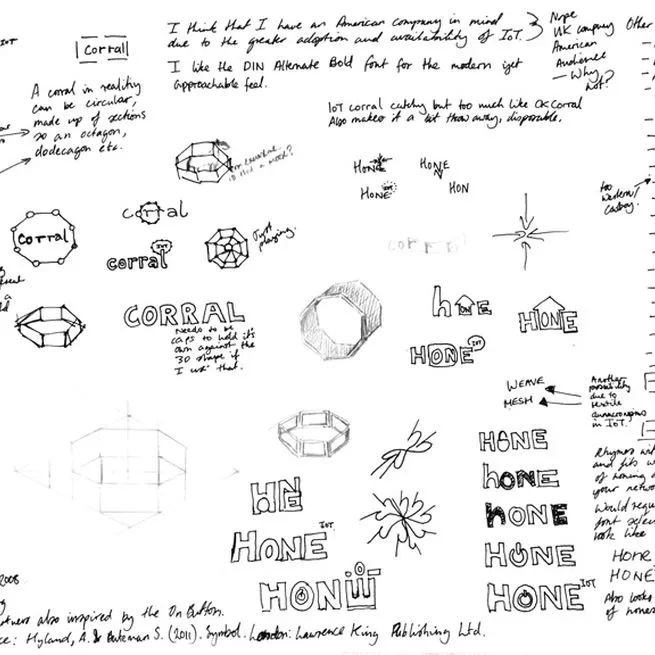 IoT
Corral
I think that I have an American company in mind
due to the greater adoption and availability of IoT.
Nope
UK company
American
Audience
– Why
not?
Other
I like the DIN Alternate Bold font for the modern yet
approachable feel.
A corral in reality
can be circular,
made up of sections
so an octagon,
dodecagon etc.
IoT corral catchy but too much like OK Corral
Also makes it a bit throw away, disposable.
HONE
HONE
HONE
HON
too
Western/
Cowboy.
corral
corral
corral IoT
Just
playing.
CORRAL
Needs to be
caps to hold its
own against the
3D shape if
I use that.
HONE
HONE
HONE IoT
WEAVE
MESH
Another
possibility
due to
textile
in IoT.
HONE
HONE
HONE
HONE
HONE IoT
HNE
HONE IoT
HON
Rhymes
and fits
of honing
your
Would
font
look like
HOME
HONE
Also looks
of
2008
also inspired by the On Button.
Hyland, A. & Bateman S. (2011). Symbol. London: Lawrence King Publishing Ltd.